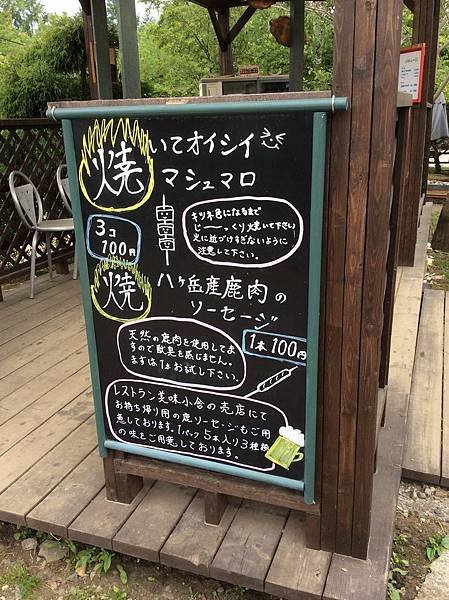 焼いてオイシイ
マシュマロ
3コ
100円
キツネ色になるまで
じ〜〜っくり焼いて下さい
火に近づけすぎないように
注意して下さい。
焼 八ヶ岳産鹿肉の
ソーセージ
1本100円
天然の鹿肉を使用してま
すので獣臭を感じません。
まずは1本お試し下さい。
レストラン美味小舎の売店にて
お持ち帰り用の鹿ソーセージもご用
意しております。1パック5本入り3種類
の味をご用意しております。